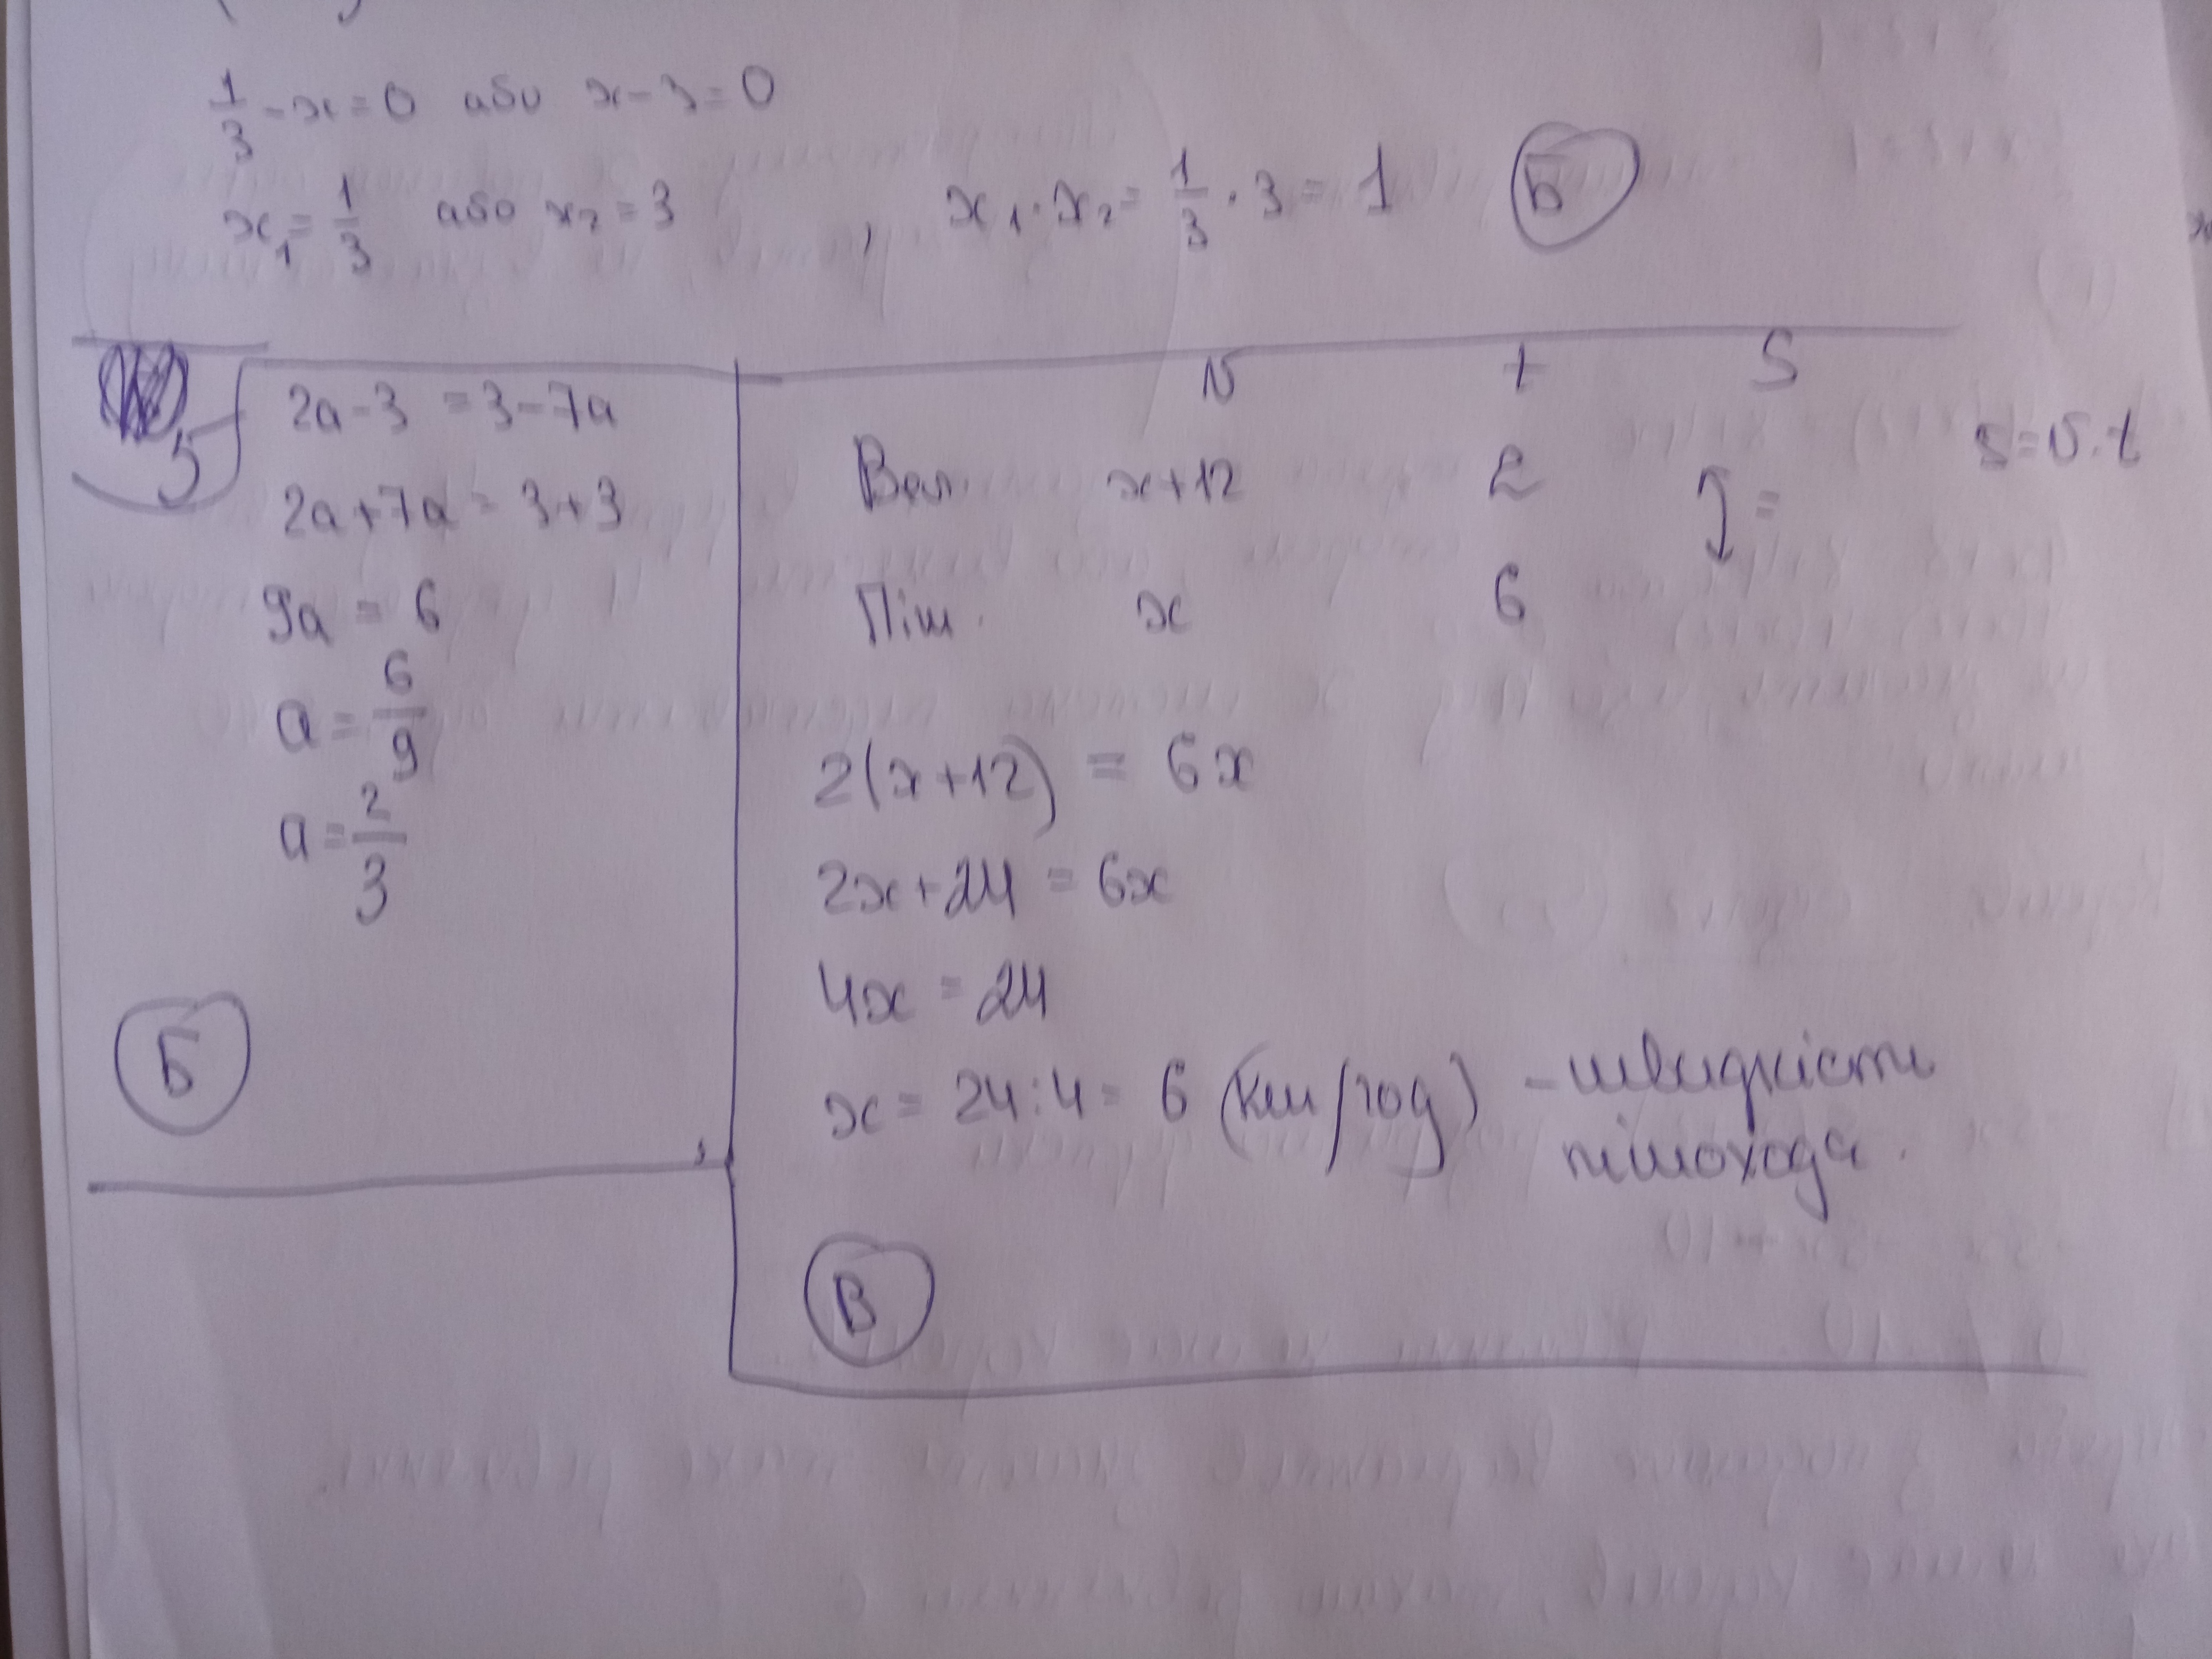 1/3 - x = 0 або x - 3 = 0
x₁ = 1/3 або x₂ = 3 , x₁ · x₂ = 1/3 · 3 = 1 Б
5
2a - 3 = 3 - 7a
2a + 7a = 3 + 3
9a = 6
a = 6/9
a = 2/3
Б
v t S
Вел. x+12 2 = S = v · t
Піш. x 6
2(x+12) = 6x
2x + 24 = 6x
4x = 24
x = 24 : 4 = 6 (км/год) - швидкість
пішохода.
В